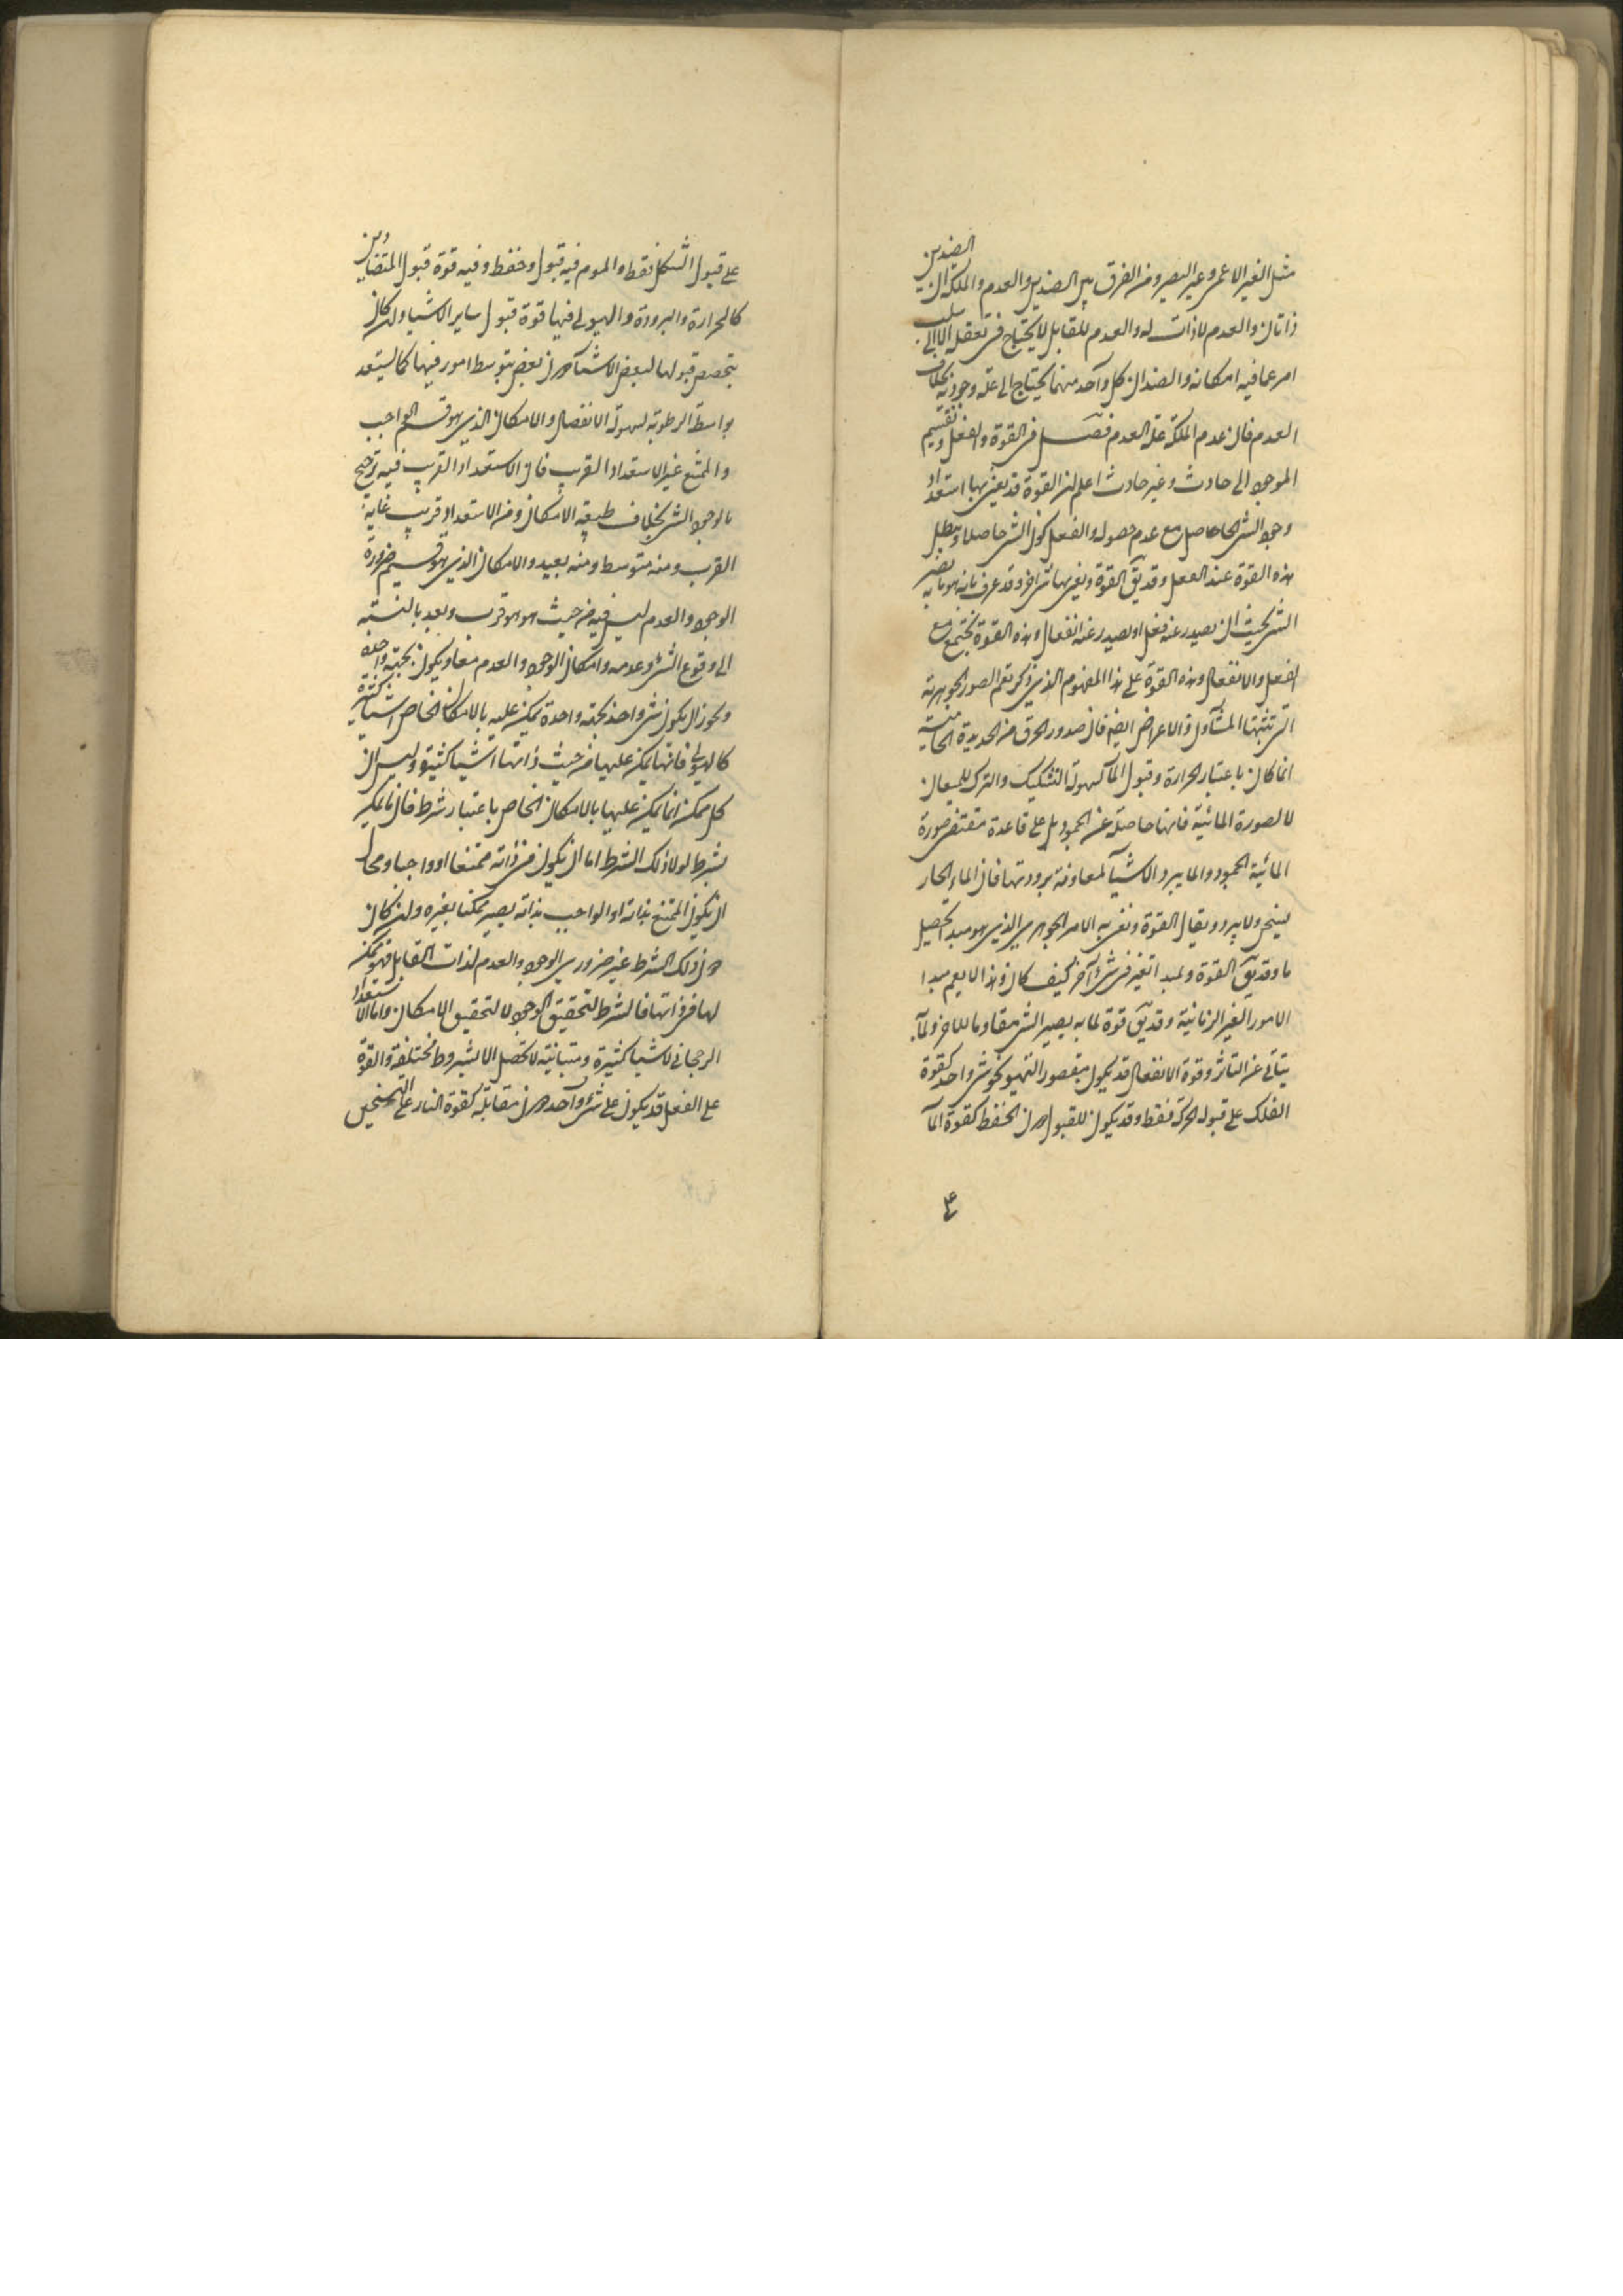 مثل الغير الاعمى وغير البصير ومن الفرق بين الضدين والعدم والملكة ان الضدين
ذاتان والعدم لا ذات له والعدم المقابل لا يحتاج في تعقله الا الى سلب
امر عما فيه امكانه والضدان كل واحد منهما يحتاج الى علة وجودية بخلاف
العدم فان عدم الملكة علة العدم فصل في القوة والفعل وتقسيم
الموجود الى حادث وغير حادث اعلم ان القوة قد يعنى بها استعداد
وجود الشي الحاصل مع عدم حصوله والفعل كون الشي حاصلا ويبطل
هذه القوة عند الفعل وقد يق القوة ويعنى بها شي اخر وقد عرف بانه هو ما به يصير
الشي بحيث ان يصدر عنه فعل او يصدر عنه انفعال وهذه القوة تجتمع مع
الفعل والانفعال وهذه القوة على هذا المفهوم الذي ذكر تعم الصور الجوهرية
التي تثبتها المشاؤن والاعراض ايضا فان صدور الحرق من الحديدة الحامية
انما كان باعتبار الحرارة وقبول الماء لسهولة التشكيك والترك للميعان
لا لصورة المائية فانها حاصلة عند الجمود بل على قاعدة مقتضى صورة
المائية الجمود والماء يبرد الاشياء لمعاونة برودتها فان الماء الحار
يسخن ولا يبرد ويقال القوة ونعنى به الامر الجوهري الذي هو مبدا تحصيل
ما وقد يق القوة ولمبدا تغير في شي آخر كيف كان وهذا لا يعم مبدا
الامور الغير الزمانية وقد يق قوة لما به يصير الشي مقاوما للاخر ولما
يتاتى عنه التاثر وقوة الانفعال قد يكون مقصور التهيؤ نحو شي واحد كقوة
الفلك على قبوله الحركة فقط وقد يكون للقبول دون الحفظ كقوة الماء
على قبول الشكل فقط والموم فيه قبول وحفظ وفيه قوة قبول المتضادين
كالحرارة والبرودة والهيولى فيها قوة قبول ساير الاشياء وان كان
يتخصص قبولها لبعض الاشياء دون بعض بتوسط امور فيها كما يستعد
بواسطة الرطوبة لسهولة الانفصال والامكان الذي هو قسيم الواجب
والممتنع غير الاستعداد القريب فان الاستعداد القريب فيه ترجح
ما لوجود الشي بخلاف طبيعة الامكان ومن الاستعداد قريب غاية
القرب ومنه متوسط ومنه بعيد والامكان الذي هو قسيم ضرورة
الوجود والعدم ليس فيه من حيث هو هو قرب وبعد بالنسبة
الى وقوع الشي وعدمه وامكان الوجود والعدم معا ويكون بجهة واحدة
ويجوز ان يكون شي واحد بجهة واحدة يمكن عليه بالامكان الخاص اشياء كثيرة
كالهيولى فانها يمكن عليها من حيث ذاتها اشياء كثيرة وليس ان
كل ممكن انما يمكن عليها بالامكان الخاص باعتبار شرط فان ما يمكن
بشرط لولا ذلك الشرط اما ان يكون في ذاته ممتنعا او واجبا ومحال
ان يكون الممتنع بذاته او الواجب بذاته يصير ممكنا بغيره وان كان
دون ذلك الشرط غير ضروري الوجود والعدم لذات القابل فهو ممكن
لها في ذاتها فالشرط لتحقيق الوجود لا لتحقيق الامكان واما الاستعداد
الرجحاني لاشياء كثيرة ومتباينة لا تحصل الا بشروط مختلفة والقوة
على الفعل قد يكون على شي واحد دون مقابله كقوة النار على التسخين
على